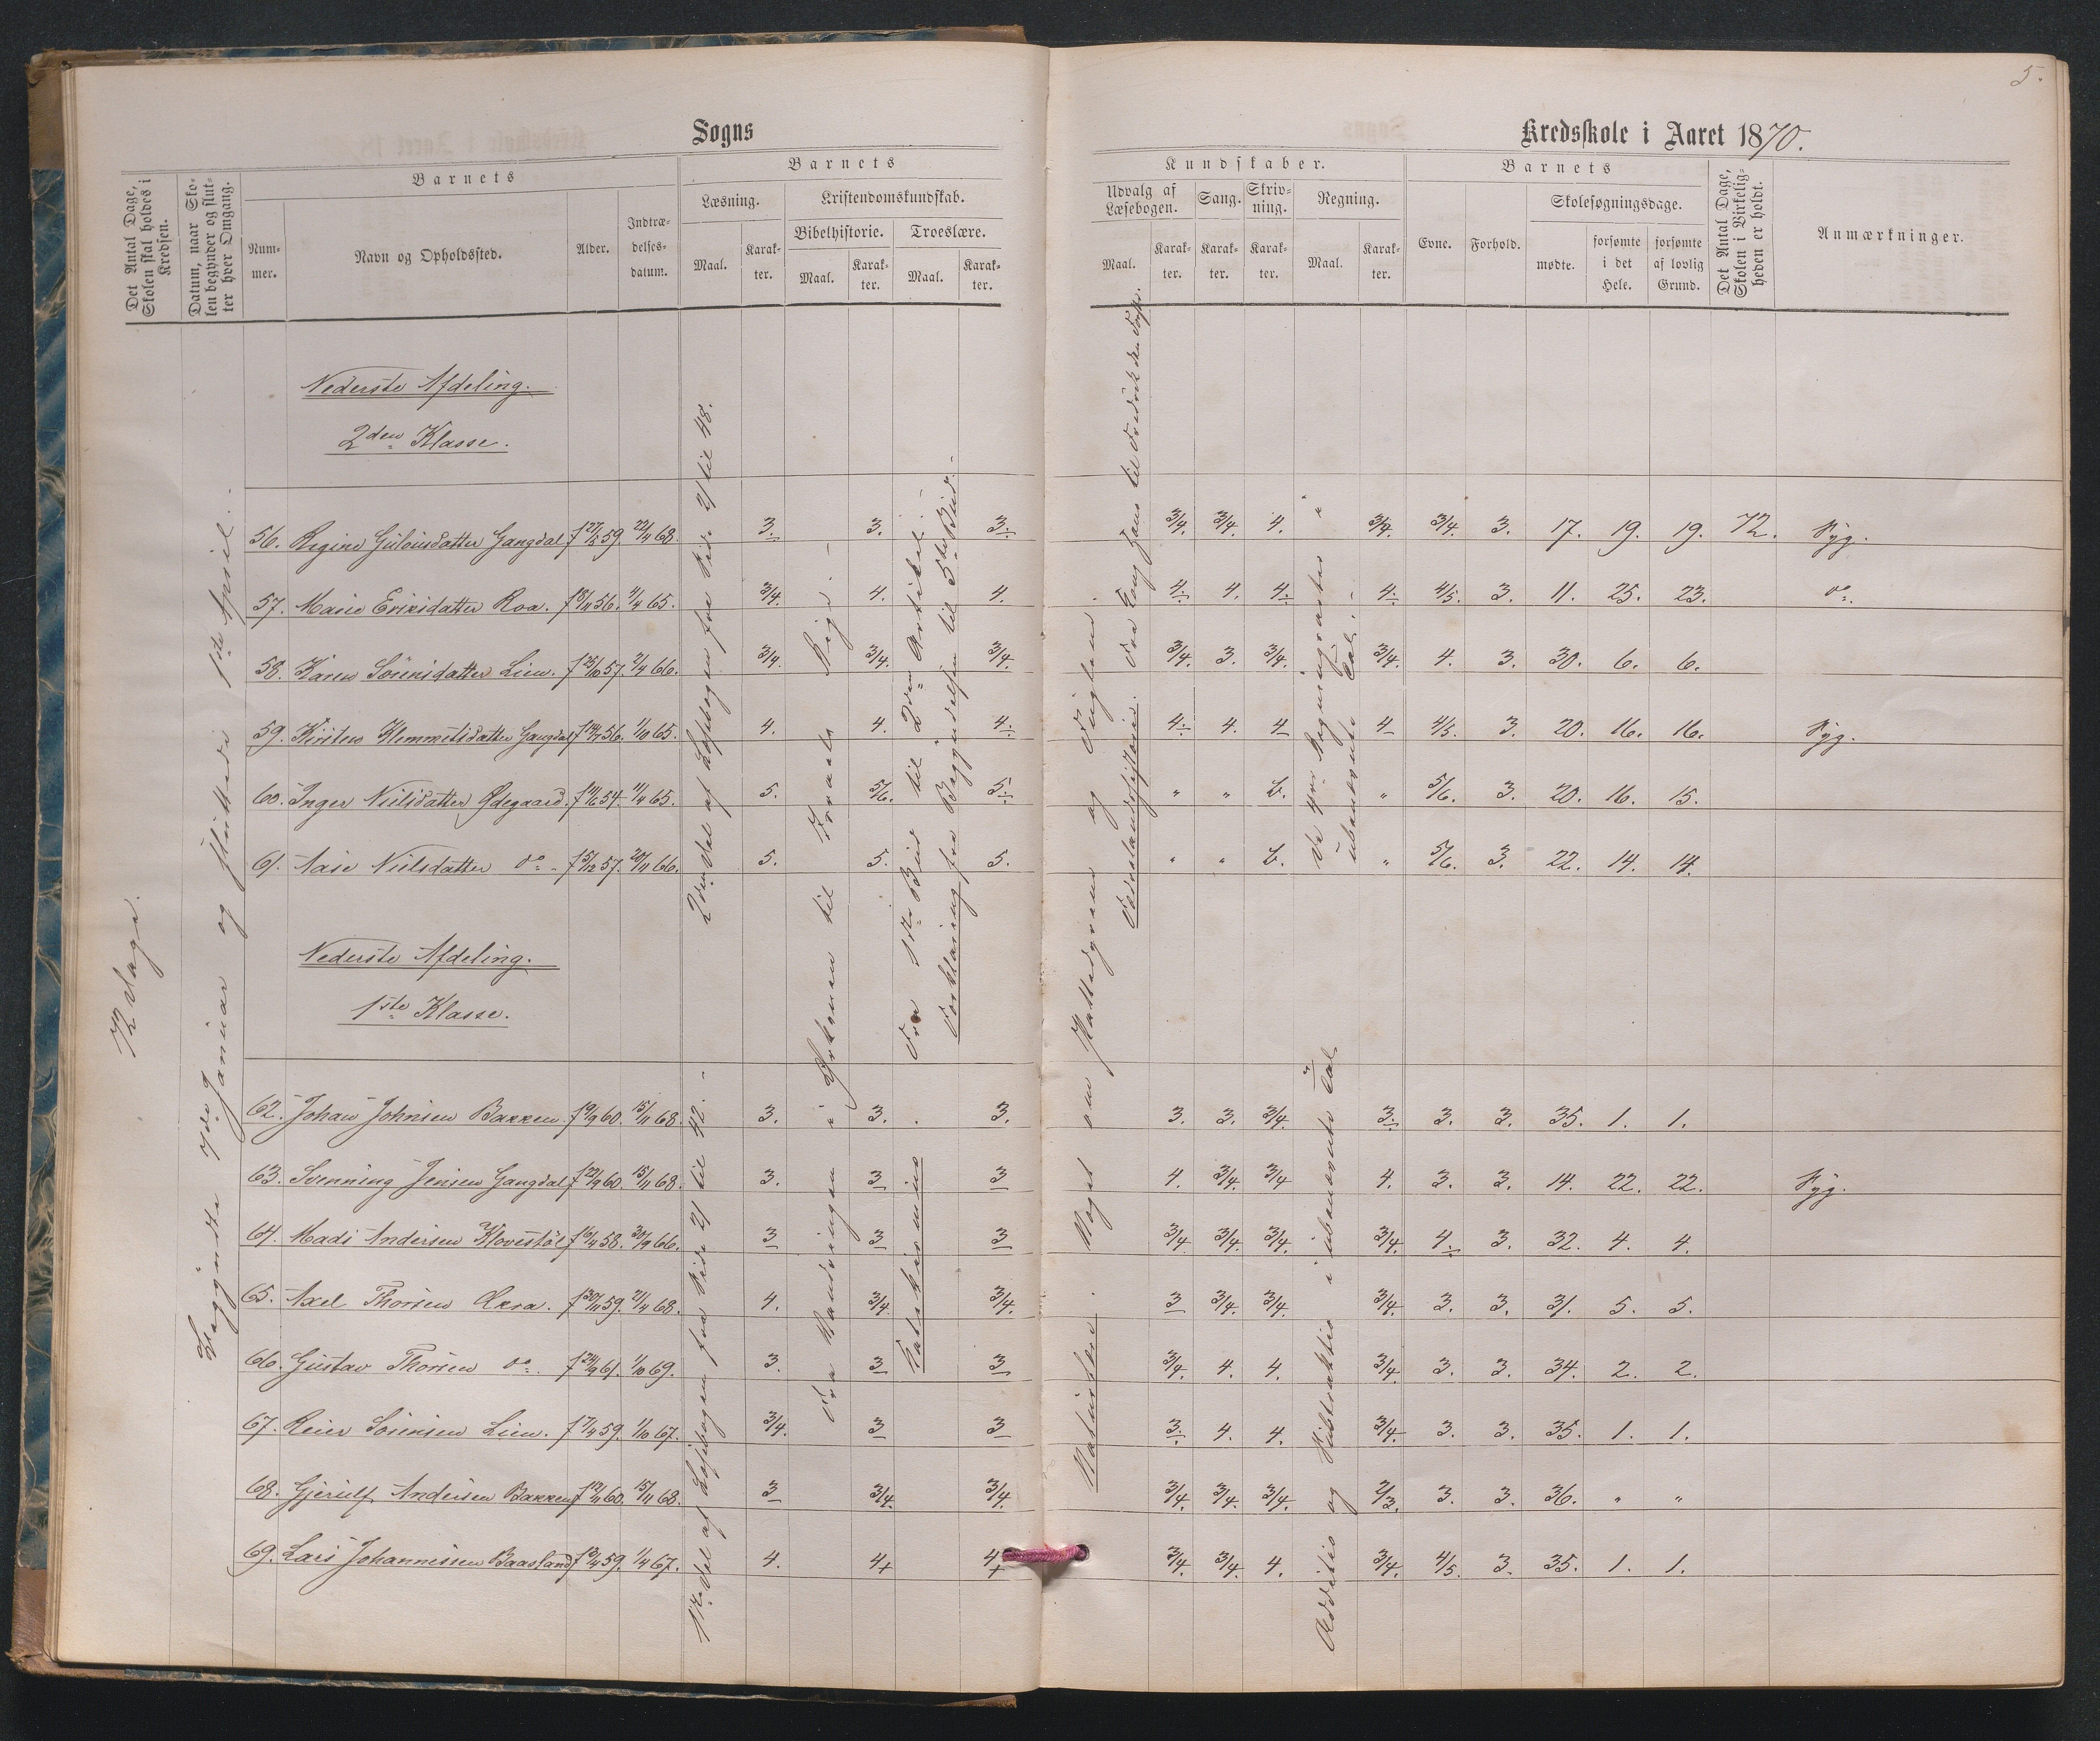 5.
Sogns
Kredsskole i Aaret 1870.
Det Antal Dage, Skolen skal holdes i Kredsen.
Datum, naar Skolen begynder og slutter hver Omgang.
Barnets
Nummer.
Navn og Opholdssted.
Alder.
Indtrædelsesdatum.
Barnets
Læsning.
Maal.
Karakter.
Kristendomskundskab.
Bibelhistorie.
Maal.
Karakter.
Troeslære.
Maal.
Karakter.
Kundskaber.
Udvalg af Læsebogen.
Maal.
Karakter.
Sang.
Karakter.
Skrivning.
Karakter.
Regning.
Maal.
Karakter.
Barnets
Evne.
Forhold.
Skolesøgningsdage.
mødte.
forsømte i det Hele.
forsømte af lovlig Grund.
Det Antal Dage, Skolen i Virkeligheden er holdt.
Anmærkninger.
72 Dage.
Begyndte 7de Januar og sluttede 1ste April.
Nederste Afdeling.
2den Klasse.
2den Del af Læsebogen fra Side 21 til 48.
Fra 1ste Bud til 2den Artikel.
Forklaring fra Begyndelsen til 5te Bud.
Fædrelandshistorie.
De 4re Regningsarter i ubenævnte Tal.
56. Regine Gulovsdatter Gangdal f 27/2 59. 22/4 68. 3. 3. 3. 3/4. 3/4. 4. 3/4. 3/4. 3. 17. 19. 19. 72. Syg.
57. Marie Eriksdatter Roa. f 18/11 56. 4/4 65. 3/4. 4. 4. 4. 4. 4. 4. 4/5. 3. 11. 25. 23. do.
58. Karen Sörensdatter Lien. f 25/10 57. 2/4 66. 3/4. 3/4. 3/4. 3/4. 3. 3/4. 3/4. 4. 3. 30. 6. 6.
59. Kirsten Klemmetsdatter Gangdal f 14/7 56. 1/10 65. 4. 4. 4. 4. 4. 4 4 4/5. 3. 20. 16. 16. Syg.
60. Inger Nielsdatter Ødegaard. f 14/6 54. 11/4 65. 5. 5/6. 5. " " 6. " 5/6. 3. 20. 16. 15.
61. Aase Nielsdatter do. f 5/12 57. 20/11 66. 5. 5. 5. " " 6. " 5/6. 3. 22. 14. 14.
Nederste Afdeling.
1ste Klasse.
1ste Del af Læsebogen fra Side 21 til 42.
Fra Vandringen i Ørkenen til Israels Rige.
Katekismus
Naturlære. Noget om Pattedyrene og Fuglene.
Addition og Subtraktion i ubenævnte Tal
62. Johan Johnsen Bakken f 19/9 60. 15/11 68. 3. 3. 3. 3. 3. 3/4. 3. 3. 3. 35. 1. 1.
63. Svenning Jensen Gangdal f 22/9 60. 15/11 68. 3. 3 3 4. 3/4. 3/4 4. 3. 3. 14. 22. 22. Syg.
64. Mads Andersen Klovestöl f 16/4 58. 30/9 66. 3 3 3 3/4 3/4. 3/4. 3/4. 4. 3. 32. 4. 4.
65. Axel Thorsen f 30/11 59. 21/4 68. 4. 3/4 3/4. 3 3/4. 3/4. 3/4. 3. 3. 31. 5. 5.
66. Gustav Thorsen do. f 24/9 61. 1/10 69. 3. 3 3 3/4. 4. 4. 3/4. 3. 3. 34. 2. 2.
67. Reier Sörensen Lien. f 17/4 59. 1/10 67. 3/4. 3 3 3. 4. 4. 3/4. 3. 3. 35. 1. 1.
68. Gjerulf Andersen Bakken f 12/11 60. 15/11 68. 3 3/4 3/4. 3/4. 3/4. 3/4. 2/3. 3. 3. 36. " "
69. Lars Johannessen Baasland f 13/4 59. 1/4 67. 4. 4+ 4+ 3/4. 3/4. 4. 3/4. 4/5. 3. 35. 1. 1.